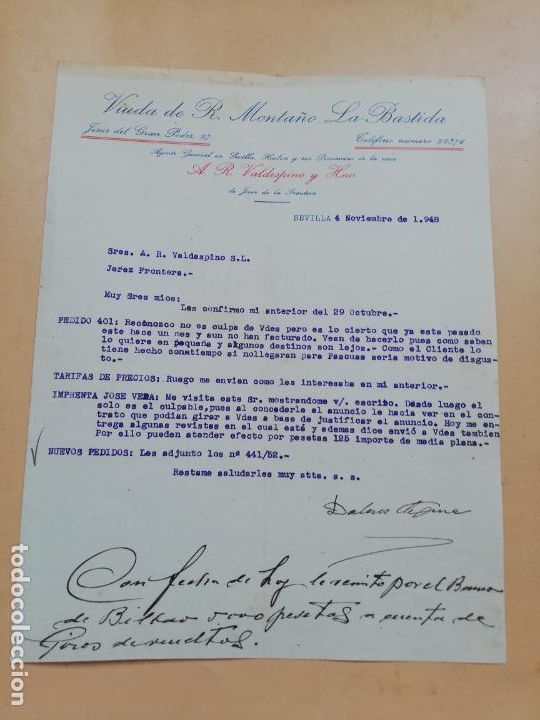 Viuda de R. Montaño La Bastida
Jesús del Gran Poder, 97
Teléfono número 26376
Agente General en Sevilla, Huelva y sus Provincias de la casa
A. R. Valdespino y Hno.
de Jerez de la Frontera
SEVILLA 4 Noviembre de 1.948
Sres. A. R. Valdespino S.L.
Jerez Frontera.-
Muy Sres mios:
Les confirmo mi anterior del 29 Octubre.-
PEDIDO 401: Reconozco no es culpa de Vdes pero es lo cierto que ya esta pasado
este hace un mes y aun no han facturado. Vean de hacerlo pues como saben
lo quiere en pequeña y algunos destinos son lejos.- Como el Cliente lo
tiene hecho conatiempo si nollegaran para Pascuas serie motivo de disgus-
to.-
TARIFAS DE PRECIOS: Ruego me envien como les interesaba en mi anterior.-
IMPRENTA JOSE VERA: Me visita este Sr. mostrandome v/. escrito. Desde luego el
solo es el culpable,pues al concederle el anuncio le hacia ver en el con-
trato que podian girar a Vdes a base de justificar el anuncio. Hoy me en-
trega algunas revistas en el cual está y ademas dice envió a Vdes tambien
Por ello pueden atender efecto por pesetas 125 importe de media plana.-
NUEVOS PEDIDOS: Les adjunto los nº 441/52.-
Restame saludarles muy atta. s. s.
Dolores
Con fecha de hoy le remito por el Banco
de Bilbao 5000 pesetas a cuenta de
Giros devueltos.
todocoleccion